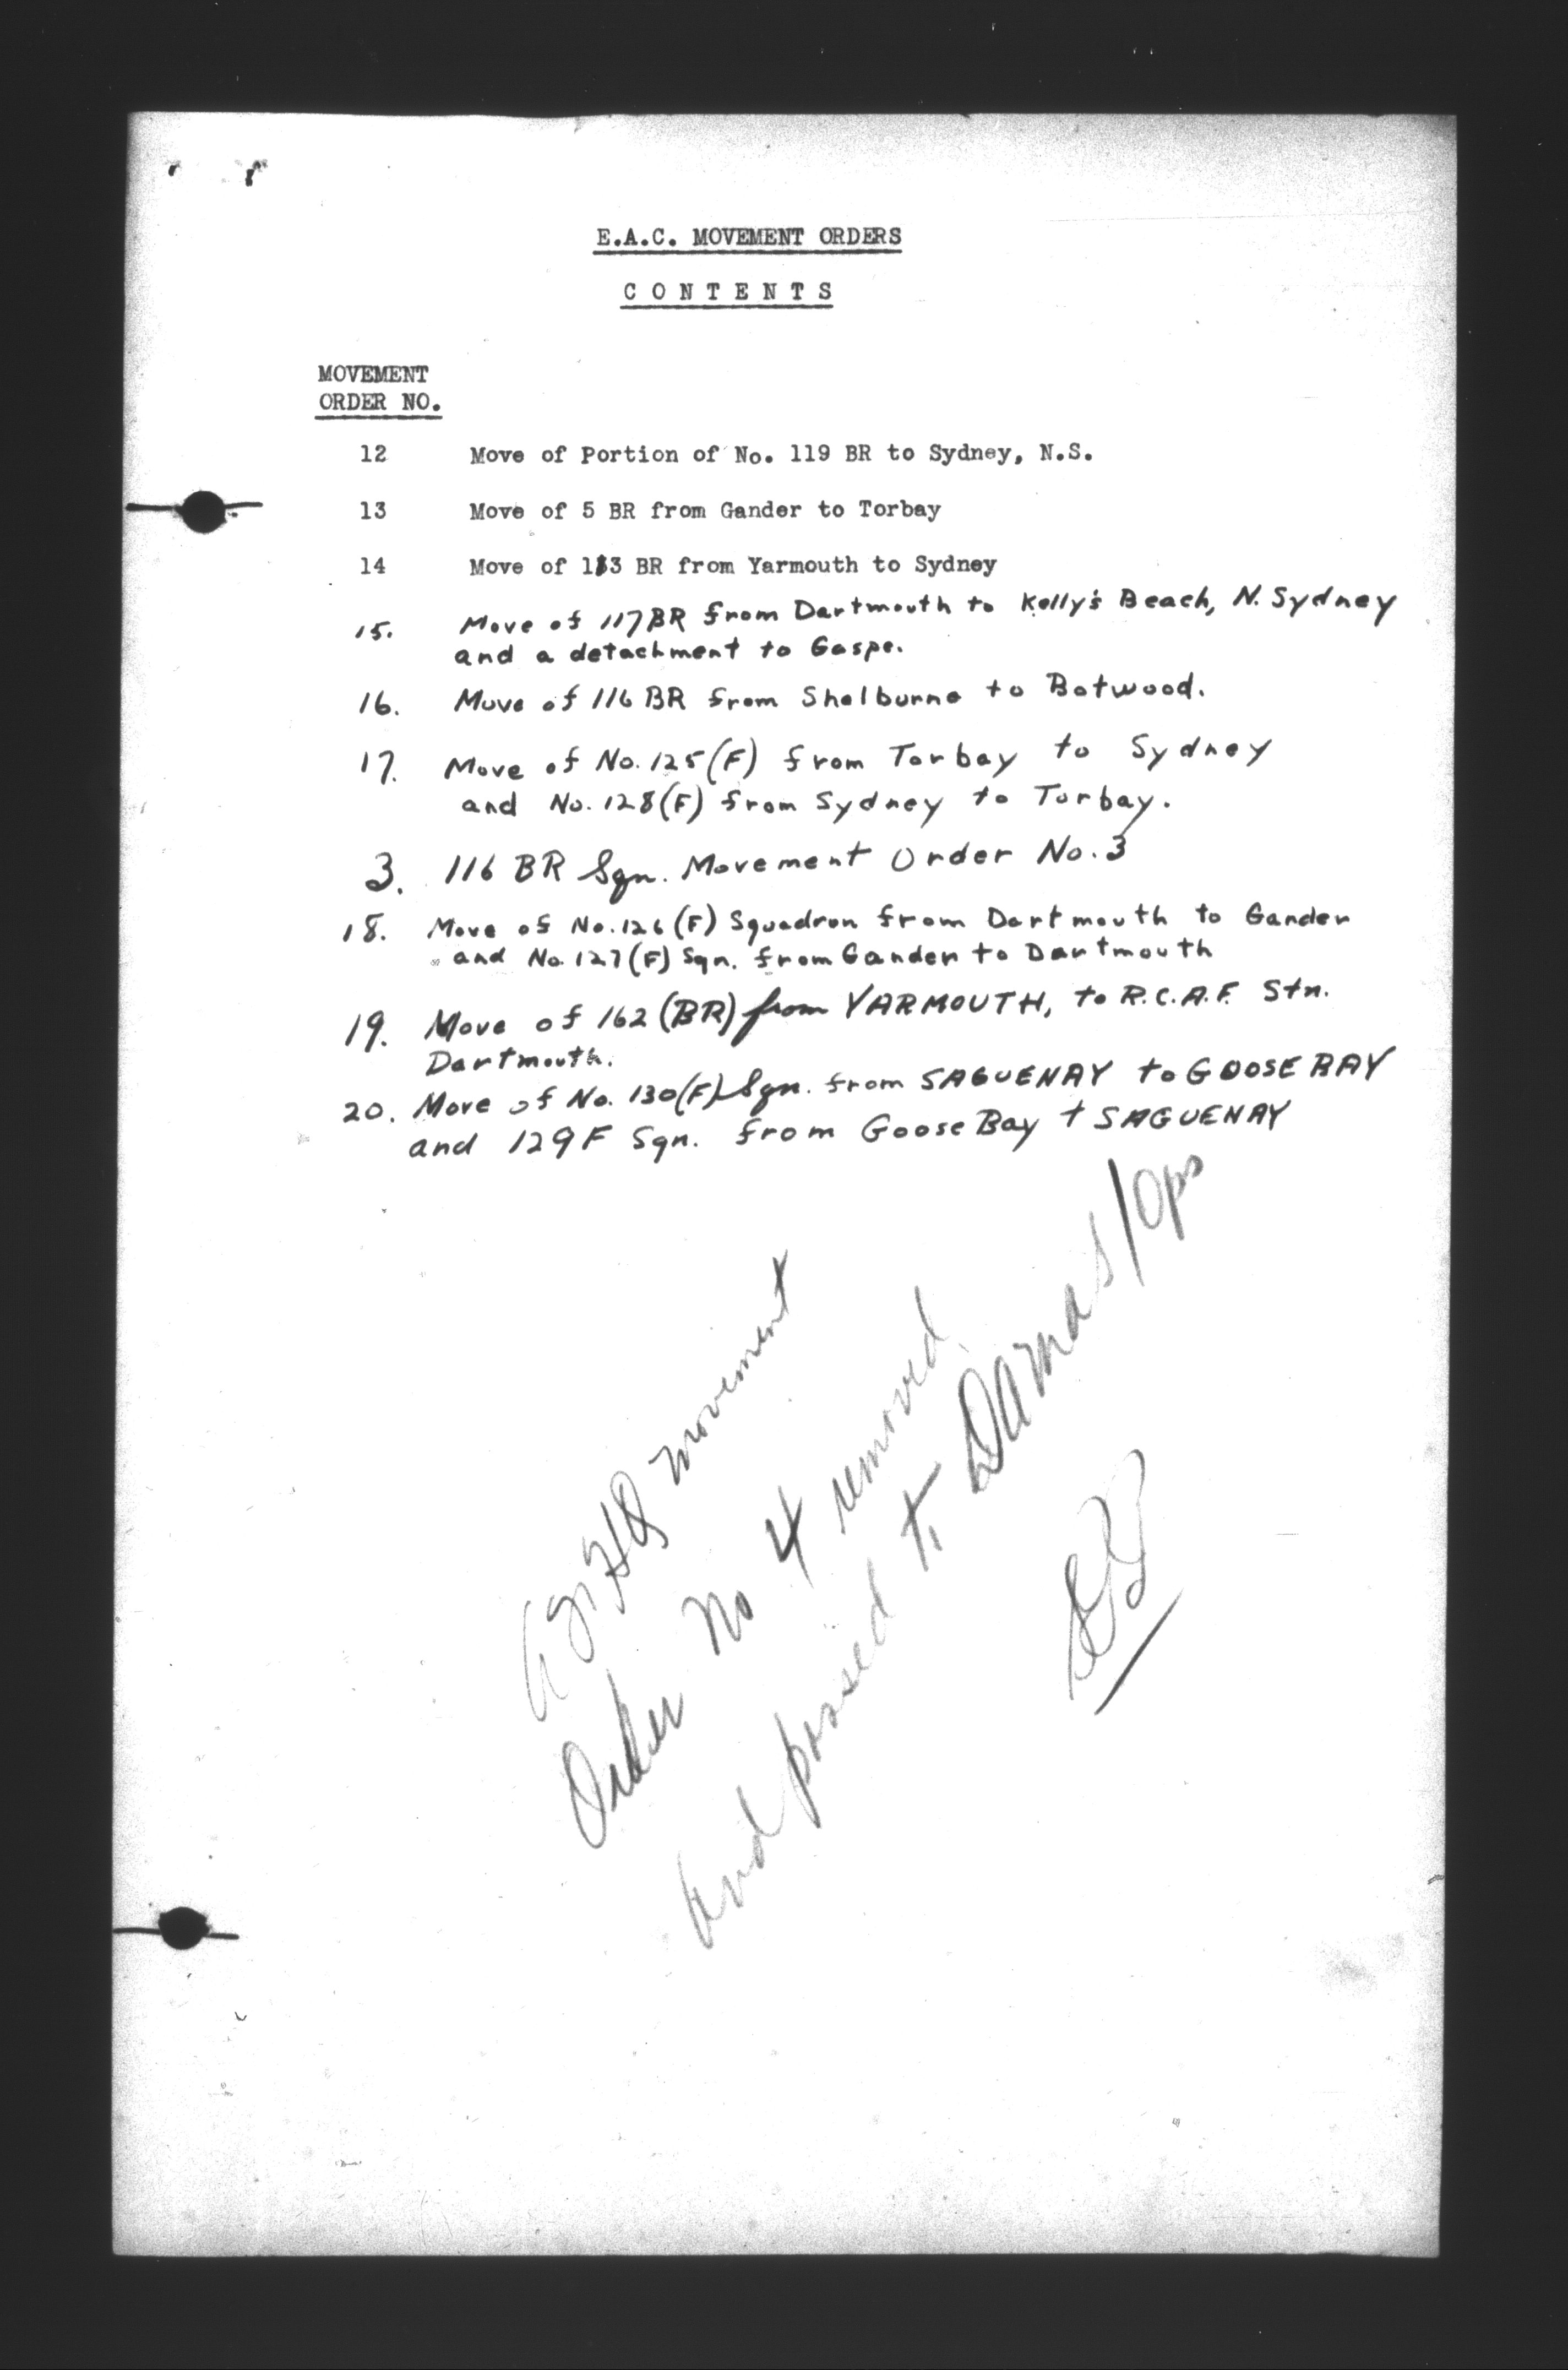 E.A.C. MOVEMENT ORDERS
C O N T E N T S
MOVEMENT
ORDER NO.
12 Move of Portion of No. 119 BR to Sydney, N.S.
13 Move of 5 BR from Gander to Torbay
14 Move of 113 BR from Yarmouth to Sydney
15. Move of 117 BR from Dartmouth to Kelly's Beach, N. Sydney
and a detachment to Gaspe.
16. Move of 116 BR from Shelburne to Botwood.
17. Move of No. 125 (F) from Torbay to Sydney
and No. 128 (F) from Sydney to Torbay.
3. 116 BR Sqn. Movement Order No. 3
18. Move of No. 126 (F) Squadron from Dartmouth to Gander
and No. 127 (F) Sqn. from Gander to Dartmouth
19. Move of 162 (BR) from YARMOUTH, to R.C.A.F. Stn.
Dartmouth.
20. Move of No. 130 (F) Sqn. from SAGUENAY to GOOSE BAY
and 129 F Sqn. from Goose Bay t SAGUENAY
movement
Order No 4 removed
and passed to Ops